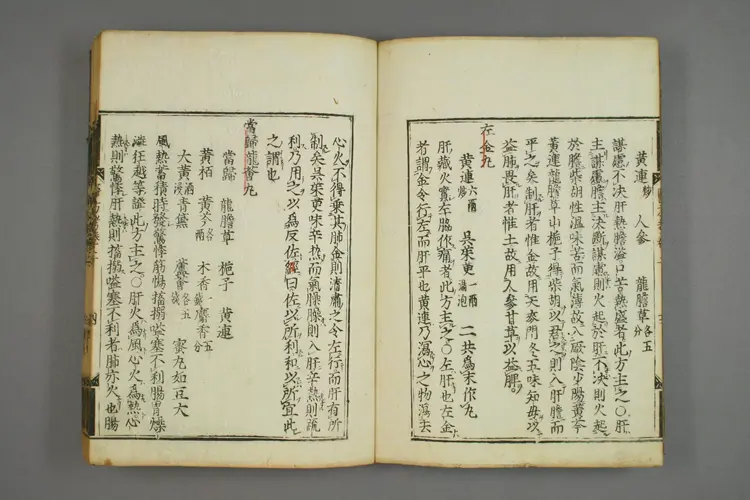 黃連炒 人參 龍膽草各五分
謀慮不決肝熱膽溢口苦熱盛者此方主之○肝
主謀慮膽主決斷謀慮則火起於肝不決則火起
於膽柴胡性溫味苦而氣薄故入厥陰少陽黃芩
黃連龍膽草山梔子得柴胡以君之則入肝膽而
平之矣制肝者惟金故用天麥門冬五味知母以
益肺畏肝者惟土故用人參甘草以益脾
左金丸
黃連六兩炒 吳茱萸一兩湯泡 二共爲末作丸
肝臟火實左脇作痛者此方主之○左肝也左金
者謂金令行左而肝平也黃連乃瀉心之物瀉去
心火不得乘其肺金則清肅之令左行而肝有所
制矣吳茱萸味辛熱而氣臊臊則入肝辛熱則疏
利乃用之以爲反佐經曰佐以所利和以所宜此
之謂也
當歸龍薈丸
當歸 龍膽草 梔子 黃連
黃栢 黃芩各一兩 木香一錢 麝香五分
大黃酒浸 青黛 蘆薈各五錢 蜜丸如豆大
風熱蓄積時發驚悸筋惕搐搦嗌塞不利腸胃燥
澁狂越等證此方主之○肝火爲風心火爲熱心
熱則驚悸肝熱則搐搦嗌塞不利者肺亦火也腸